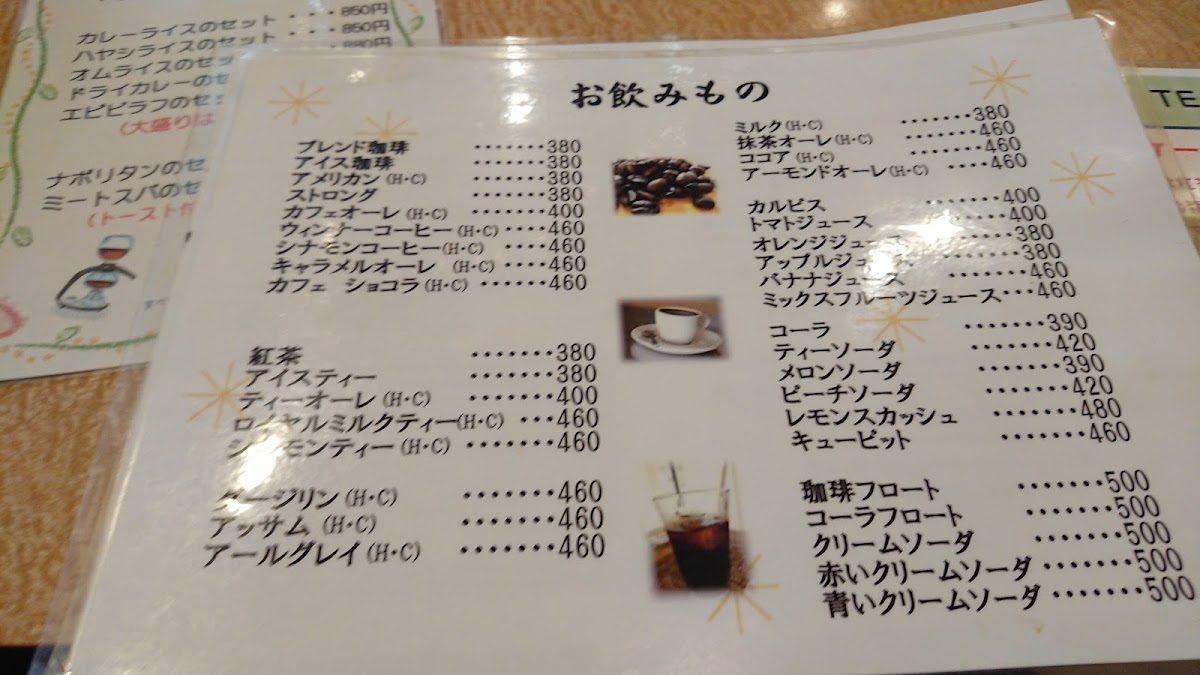 カレーライスのセット・・・850円
ハヤシライスのセット・・・850円
オムライスのセ
ドライカレーの
エビピラフのセッ
(大盛りは
ナポリタンのセ
ミートスパのセ
(トースト付
お飲みもの
ブレンド珈琲 ・・・・・・・380
アイス珈琲 ・・・・・・・380
アメリカン(H・C) ・・・・・・・380
ストロング ・・・・・・・380
カフェオーレ(H・C) ・・・・・・・400
ウィンナーコーヒー(H・C)・・・・460
シナモンコーヒー(H・C) ・・・・460
キャラメルオーレ (H・C)・・・・460
カフェ ショコラ(H・C)・・・・・・460
紅茶 ・・・・・・・380
アイスティー ・・・・・・・380
ティーオーレ(H・C) ・・・・・・・400
ロイヤルミルクティー(H・C)・・・460
シナモンティー(H・C)・・・・・・・460
ダージリン(H・C) ・・・・・・・460
アッサム(H・C) ・・・・・・・460
アールグレイ(H・C) ・・・・・・・460
ミルク(H・C) ・・・・・・・380
抹茶オーレ(H・C) ・・・・・・460
ココア(H・C) ・・・・・・460
アーモンドオーレ(H・C) ・・・・460
カルピス ・・・・・・・400
トマトジュース ・・・・・・400
オレンジジュース ・・・・380
アップルジュース ・・・・380
バナナジュース ・・・・・・・460
ミックスフルーツジュース・・・460
コーラ ・・・・・・・390
ティーソーダ ・・・・・・・420
メロンソーダ ・・・・・・・390
ピーチソーダ ・・・・・・・420
レモンスカッシュ ・・・・・・・480
キューピット ・・・・・・・460
珈琲フロート ・・・・・・・500
コーラフロート ・・・・・・・500
クリームソーダ ・・・・・・・500
赤いクリームソーダ・・・・・・・500
青いクリームソーダ・・・・・・・500
TE